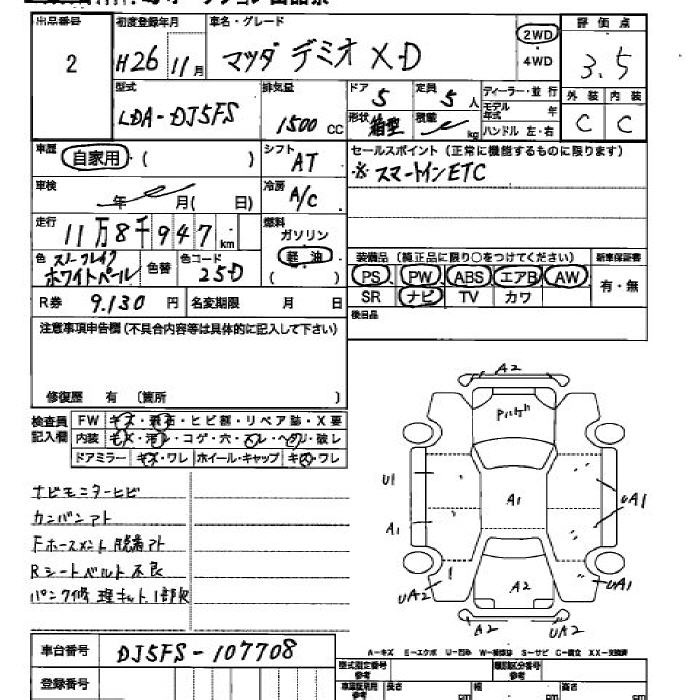 出品番号 初度登録年月 車名・グレード 2WD 評価点
2 H26 11月 マツダ デミオ XD 4WD 3.5
型式 排気量 ドア 5 定員 5人 ディーラー・並行 外装 内装
LDA-DJ5FS 1500cc 形状 箱型 積載 kg モデル年式 年 C C
ハンドル 左・右
車歴 自家用・( ) シフト AT セールスポイント(正常に機能するものに限ります)
※スマートインETC
車検 年 月( 日) 冷房 A/C
走行 11万8千947km 燃料 ガソリン
軽油
( )
色 スノーフレイク ホワイトパール 色替 色コード 25D
装備品(純正品に限り○をつけてください) 新車保証書
PS PW ABS エアB AW 有・無
SR ナビ TV カワ
R券 9.130円 名変期限 月 日 後日品
注意事項申告欄(不具合内容等は具体的に記入して下さい)
修復歴 有 〔箇所 〕
検査員記入欄 FW キズ・飛石・ヒビ割・リペア跡・X要
内装 キズ・汚レ・コゲ・穴・スレ・ヘタリ・破レ
ドアミラー キズ・ワレ ホイール・キャップ キズ・ワレ
ナビモニターヒビ
カンバンアト
Fホースメント脱着アト
Rシートベルト不良
パンク修理キット1部欠
A2
U1 A1 UA1
A1
UA2 A2 UA1
A2 UA2
A-キズ E-エクボ U-凹み W-補修跡 S-サビ C-腐食 XX-交換済
車台番号 DJ5FS-107708
型式指定番号 参考 類別区分番号 参考
登録番号 長さ cm 幅 cm 高さ cm